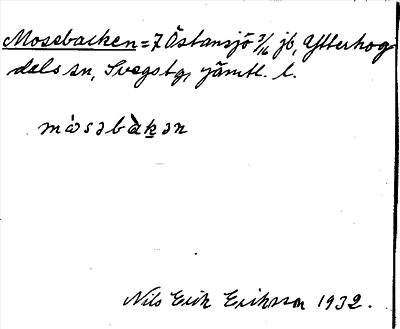 Mosebacken = 7 Östansjö 3/16 jb, Ytterhog
dals sn, Svegs tg, Jämtl. l.
mòsəbàkən
Nils Erik Eriksson 1932.